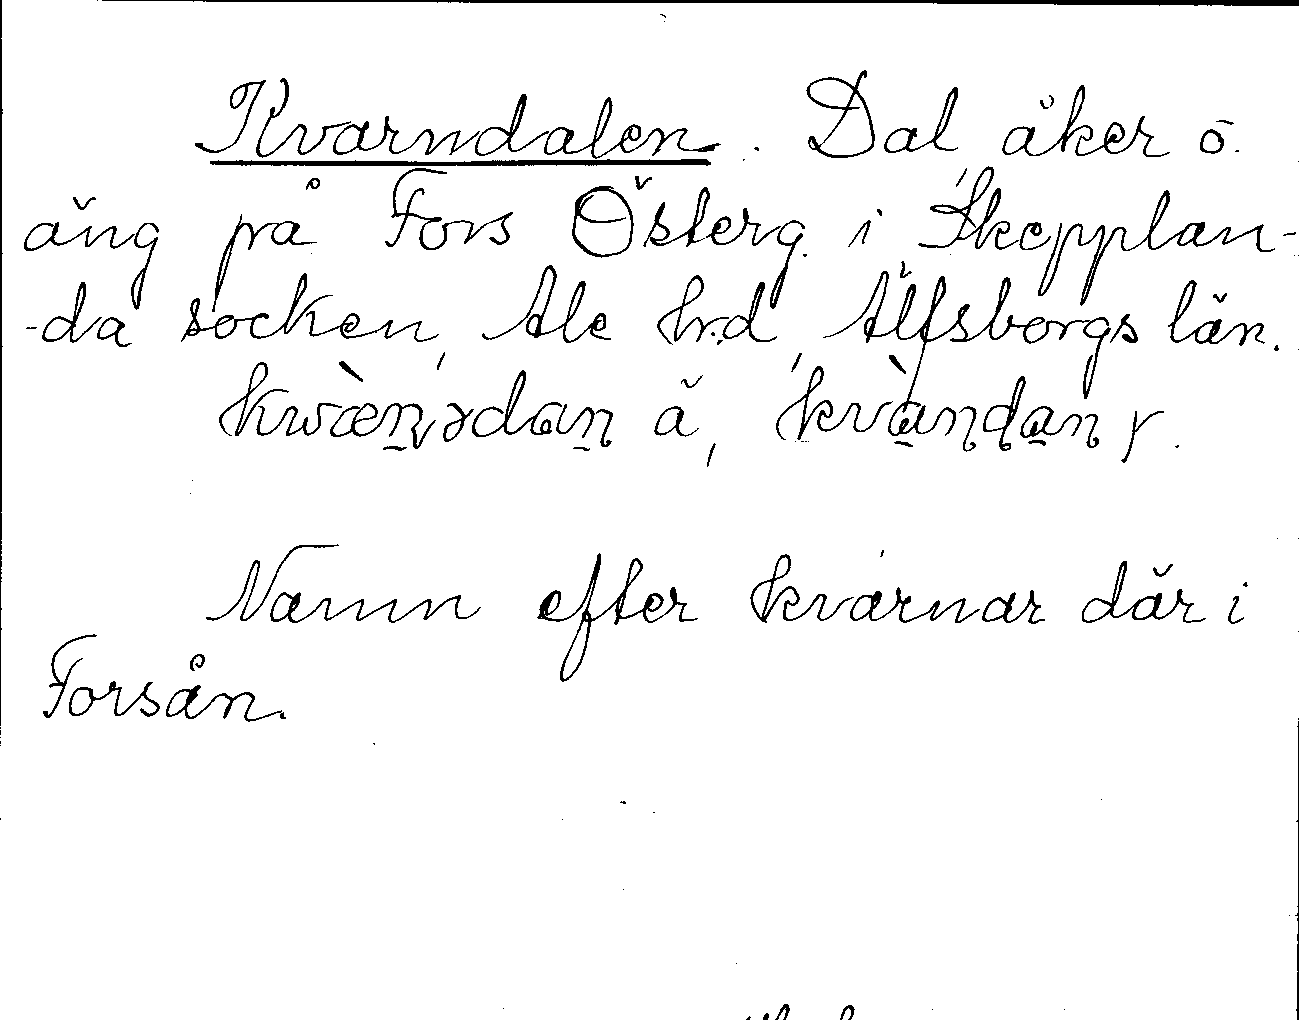 Kvarndalen. Dal, åker o.
äng på Fors Österg. i Skepplan-
-da socken, Ale hrd, Älfsborgs län.
kwæ̀nədan ä, kvàndan y.
Namn efter kvarnar där i
Forsån.